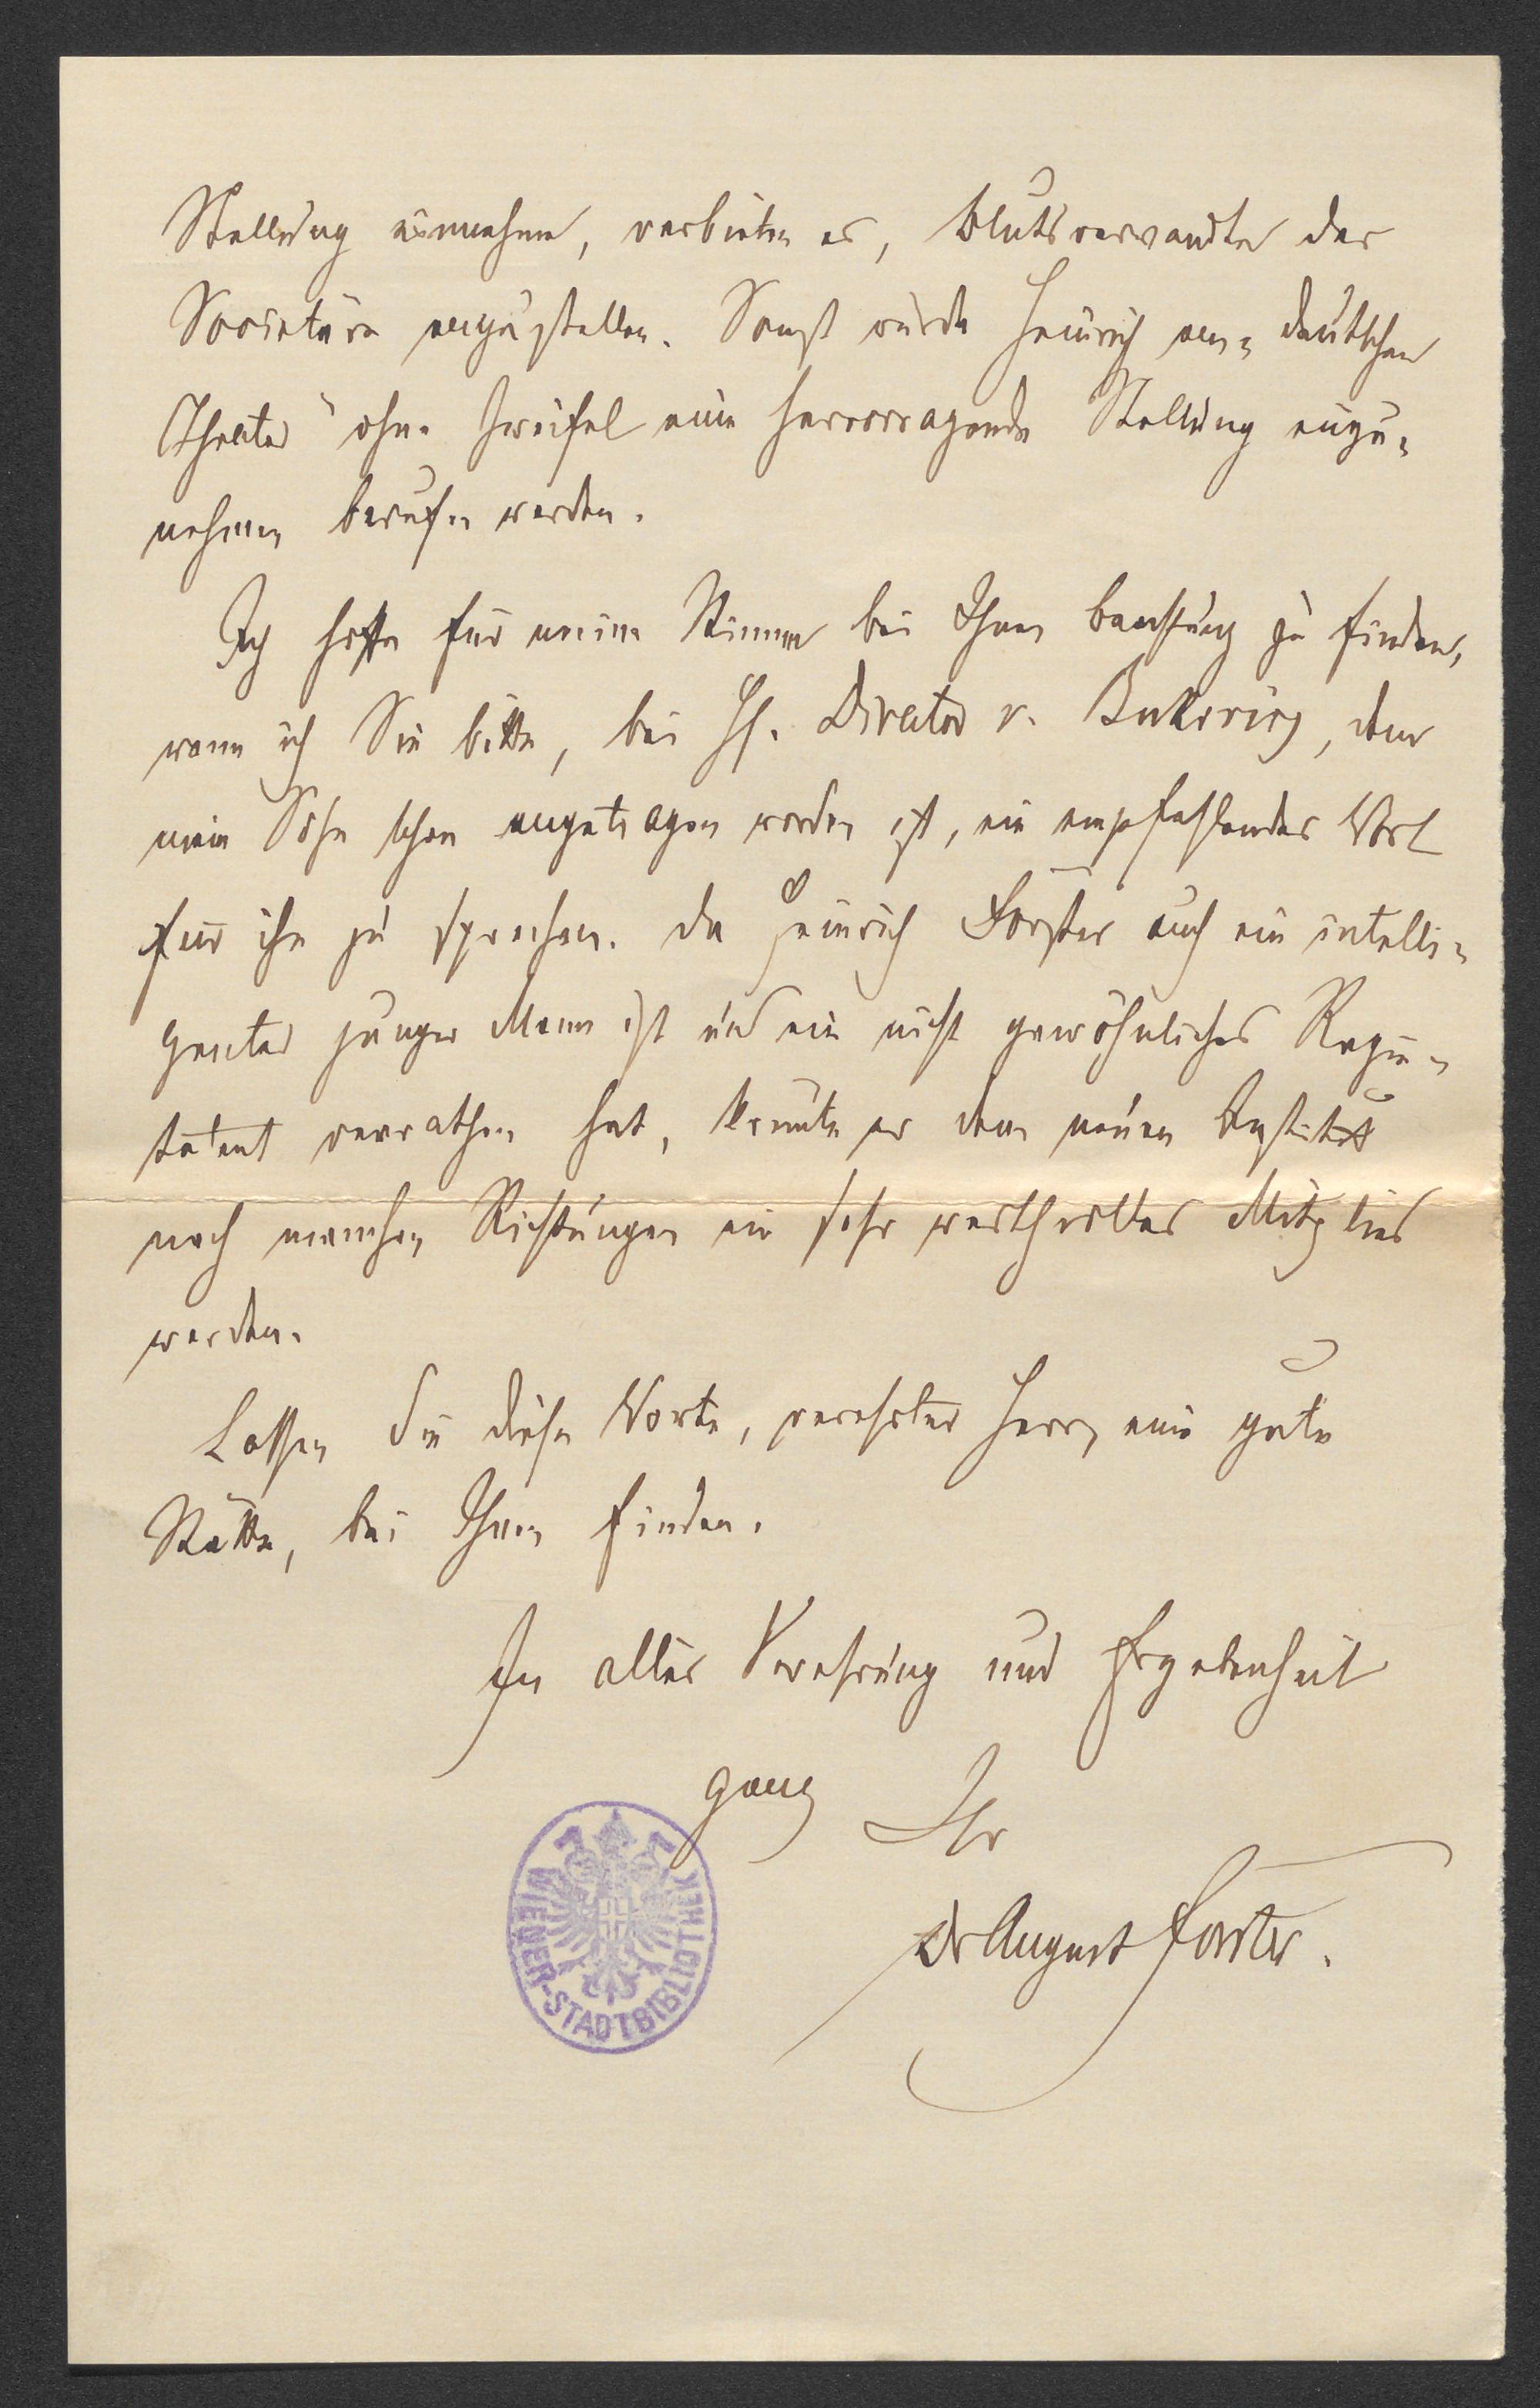 Stellung einnehme, verbieten es, Blutsverwandte der
Societäre anzustellen. Sonst würde Heinrich am „deutschen
Theater" ohne Zweifel eine hervorragende Stellung einzu-
nehmen berufen werden.
Ich hoffe für meine Stimme bei Ihnen Beachtung zu finden,
wenn ich Sie bitte, bei H. Director v. Bukovics, dem
mein Sohn schon angetragen worden ist, ein empfehlendes Wort
für ihn zu sprechen. Da Heinrich Förster auch ein intelli-
genter junger Mann ist und ein nicht gewöhnliches Regie-
talent verrathen hat, könnte er dem neuen Institut
nach manchen Richtungen ein sehr werthvolles Mitglied
werden.
Lassen Sie diese Worte, verehrter Herr, eine gute
Stätte, bei Ihnen finden.
In aller Verehrung und Ergebenheit
ganz Ihr
Dr August Förster.
WIENER-STADTBIBLIOTHEK